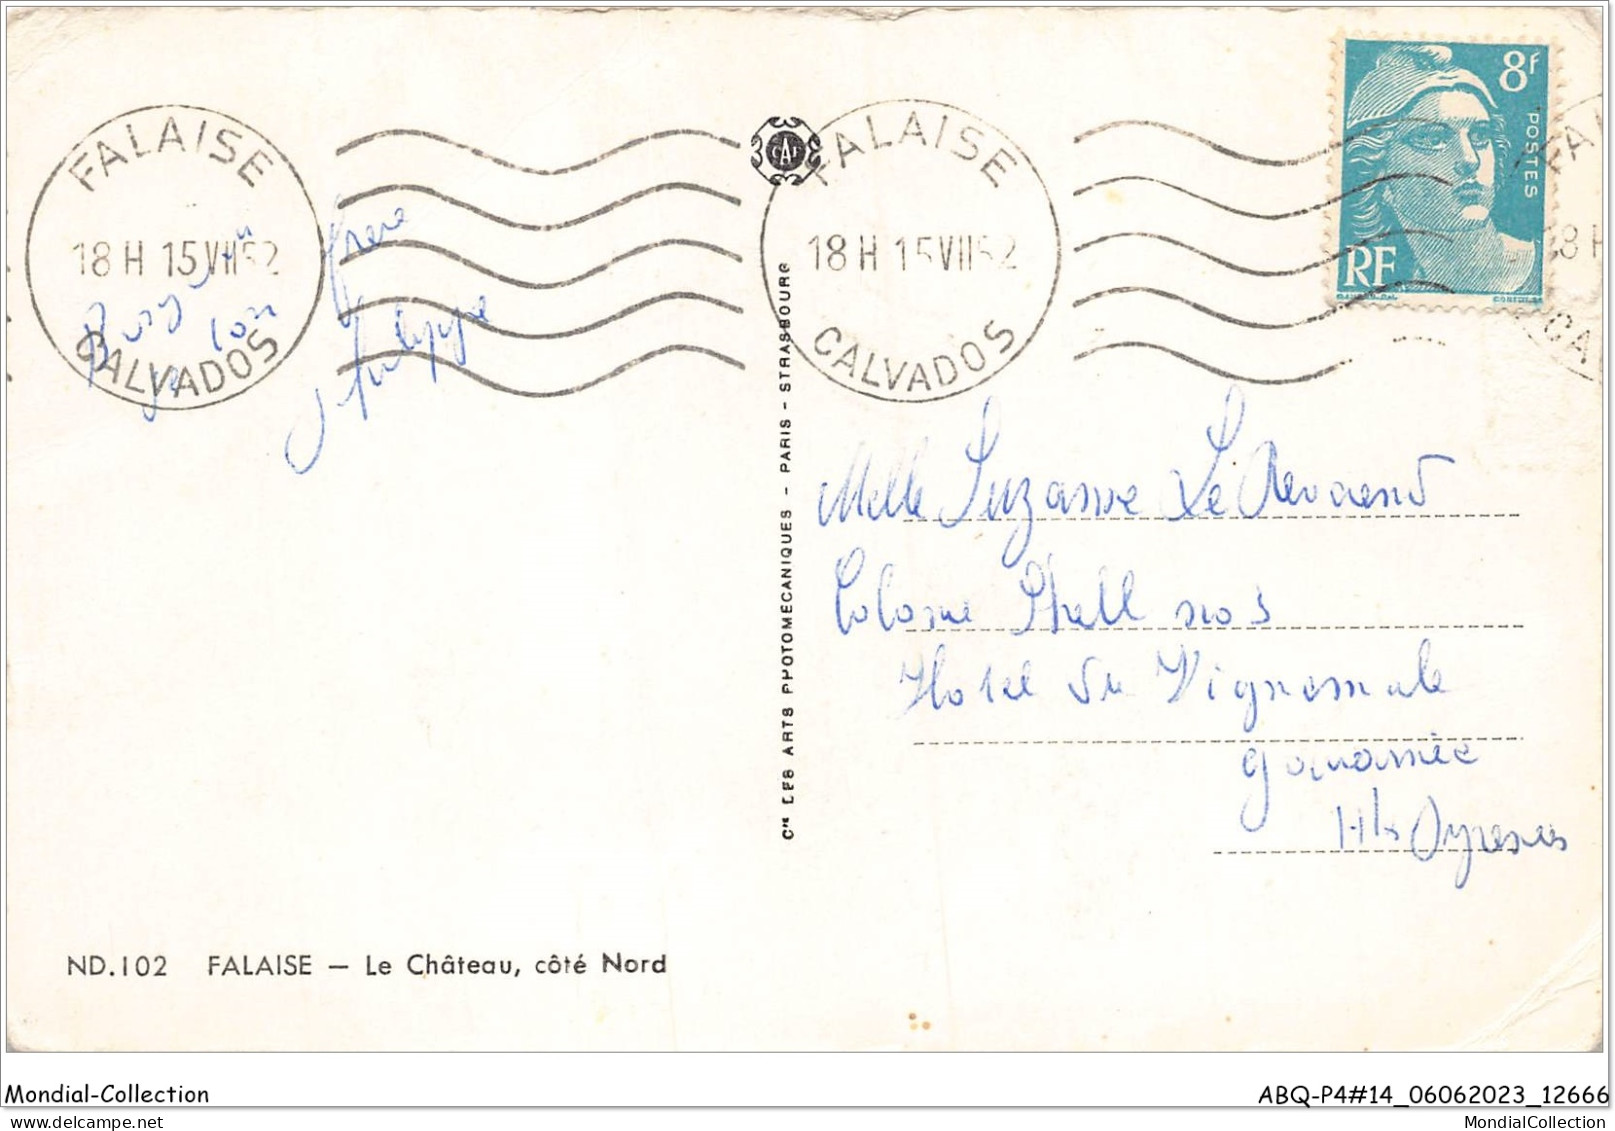 FALAISE
18 H 15 VII 52
CALVADOS
FALAISE
18 H 15 VII 52
CALVADOS
8f
POSTES
RF
FA
18 H
CA
CAP
ton frère
Philippe
Melle Suzanne Le Reverend
Colonie Shell no 3
Hotel du Vignemale
gavarnie
Htes Pyrenees
Cie LES ARTS PHOTOMECANIQUES - PARIS - STRASBOURG
ND.102 FALAISE — Le Château, côté Nord
Mondial-Collection
ABQ-P4#14_06062023_12666
MondialCollection.com